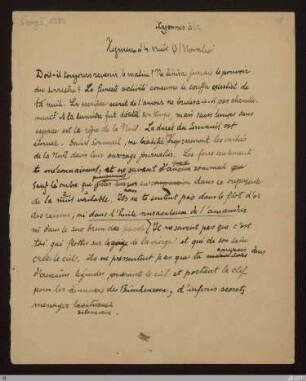 Hymnes à la
Hymnes à la nuit (Novalis)
Doit-il toujours revenir, le matin? Ne finira jamais le pouvoir
du terrestre? La funeste activité consume le souffle céleste de
la nuit. Le sacrifice secret de l'amour ne brûlera-t-il pas éternelle-
ment? A la lumière fut départi son temps, mais sans temps sans
espace est le règne de la Nuit. La durée du sommeil est
éternel. Saint Sommeil, ne
de la Nuit dans leur ouvrage journalier. Les fous seulement
te méconnaissent, et ne savent d'aucun sommeil que
sauf l'ombre que tu jettes dans ce crépuscule
de la nuit véritable. Ils ne te sentent pas dans le flot d'or
des raisins, ni dans l'huile miraculeuse de l'amandier
ni dans le suc brun des pavots. Ils ne savent pas que c'est
toi qui flottes sur la gorge de la vierge et qui de son sein
crée le ciel. Ils ne pressentent pas que tu
d'anciennes légendes ouvrant le ciel et portant la clef
pour les demeures des Bienheureux, d'infinis secrets,
messager
silencieux.